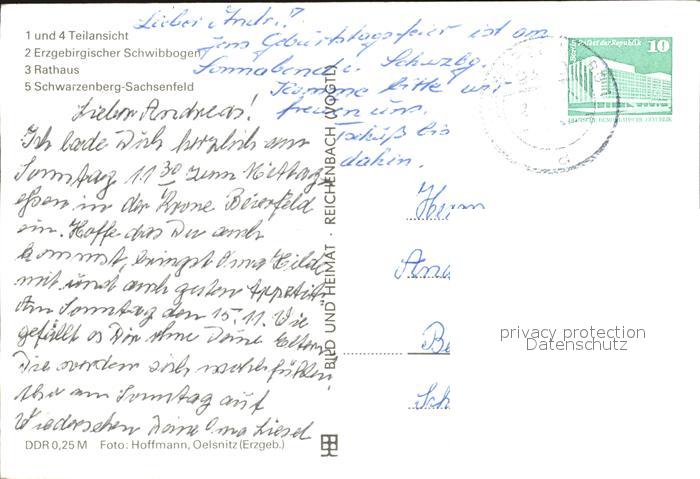 1 und 4 Teilansicht
2 Erzgebirgischer Schwibbogen
3 Rathaus
5 Schwarzenberg-Sachsenfeld
Lieber Andr.!
Geburtstagsfeier ist am
Sonnabend i. Schwzbg.
Komme bitte wir
freuen uns.
Tschüß bis
dahin.
Lieber Andreas!
Ich lade Dich herzlich am
Sonntag 11 30 zum Mittag
essen in der Krone Beierfeld
ein. Hoffe das Du auch
kommst, bringst Oma Hilde
mit und auch guten Appetit
Am Sonntag den 15.11. Wie
gefällt es Dir ohne Deine Eltern
Die werden sich wohlfühlen,
Also am Sonntag auf
Wiedersehen Deine Oma Liesel
DDR 0,25 M Foto: Hoffmann, Oelsnitz (Erzgeb.)
BILD UND HEIMAT · REICHENBACH (VOGTL)
Herrn
And
Be
Sch
Berlin, Palast der Republik
10
DEUTSCHE DEMOKRATISCHE REPUBLIK
privacy protection
Datenschutz